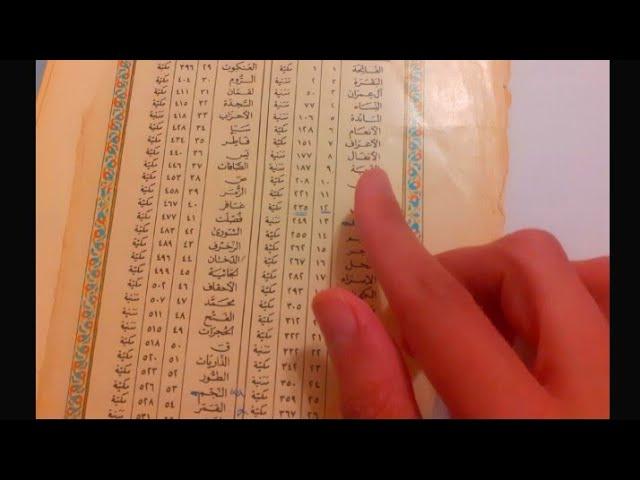 الفَاتِحَة ١ ١ مكيّة العَنكبوت ٢٩ ٣٩٦ مكيّة
البَقَرَة ٢ ٢ مَدنية الرُّوم ٣٠ ٤٠٤ مكيّة
آل عِمرَان ٣ ٥٠ مَدنية لقمَان ٣١ ٤١١ مكيّة
النِّسَاء ٤ ٧٧ مَدنية السَّجدَة ٣٢ ٤١٥ مكيّة
المَائدة ٥ ١٠٦ مَدنية الأحزَاب ٣٣ ٤١٨ مَدنية
الأنعَام ٦ ١٢٨ مكيّة سَبَإ ٣٤ ٤٢٨ مكيّة
الأعرَاف ٧ ١٥١ مكيّة فَاطِر ٣٥ ٤٣٤ مكيّة
الأنفَال ٨ ١٧٧ مَدنية يس ٣٦ ٤٤٠ مكيّة
٩ ١٨٧ مَدنية الصَّافات ٣٧ ٤٤٦ مكيّة
١٠ ٢٠٨ مكيّة ص ٣٨ ٤٥٣ مكيّة
١١ ٢٢١ مكيّة الزُّمَر ٣٩ ٤٥٨ مكيّة
١٢ ٢٣٥ مكيّة غَافِر ٤٠ ٤٦٧ مكيّة
١٣ ٢٤٩ مَدنية فُصِّلَت ٤١ ٤٧٧ مكيّة
١٤ ٢٥٥ مكيّة الشّورى ٤٢ ٤٨٣ مكيّة
١٥ ٢٦٢ مكيّة الزّخرُف ٤٣ ٤٨٩ مكيّة
١٦ ٢٦٧ مكيّة الدّخَان ٤٤ ٤٩٥ مكيّة
الإسرَاء ١٧ ٢٨٢ مكيّة الجَاثية ٤٥ ٤٩٩ مكيّة
٢٩٣ مكيّة الأحقاف ٤٦ ٥٠٢ مكيّة
٣٠٥ مكيّة محَمَّد ٤٧ ٥٠٧ مَدنية
٣١٢ مكيّة الفَتْح ٤٨ ٥١١ مَدنية
٢١ ٣٢٢ مكيّة الحُجرَات ٤٩ ٥١٥ مَدنية
٢٢ ٣٣٢ مَدنية ق ٥٠ ٥١٨ مكيّة
٢٣ ٣٤٢ مكيّة الذّاريَات ٥١ ٥٢٠ مكيّة
٢٤ ٣٥٠ مَدنية الطُّور ٥٢ ٥٢٣ مكيّة
٢٥ ٣٥٩ مكيّة النّجْم ٥٣ ٥٢٦ مكيّة
٢٦ ٣٦٧ مكيّة القَمَر ٥٤ ٥٢٨ مكيّة
٥٣١